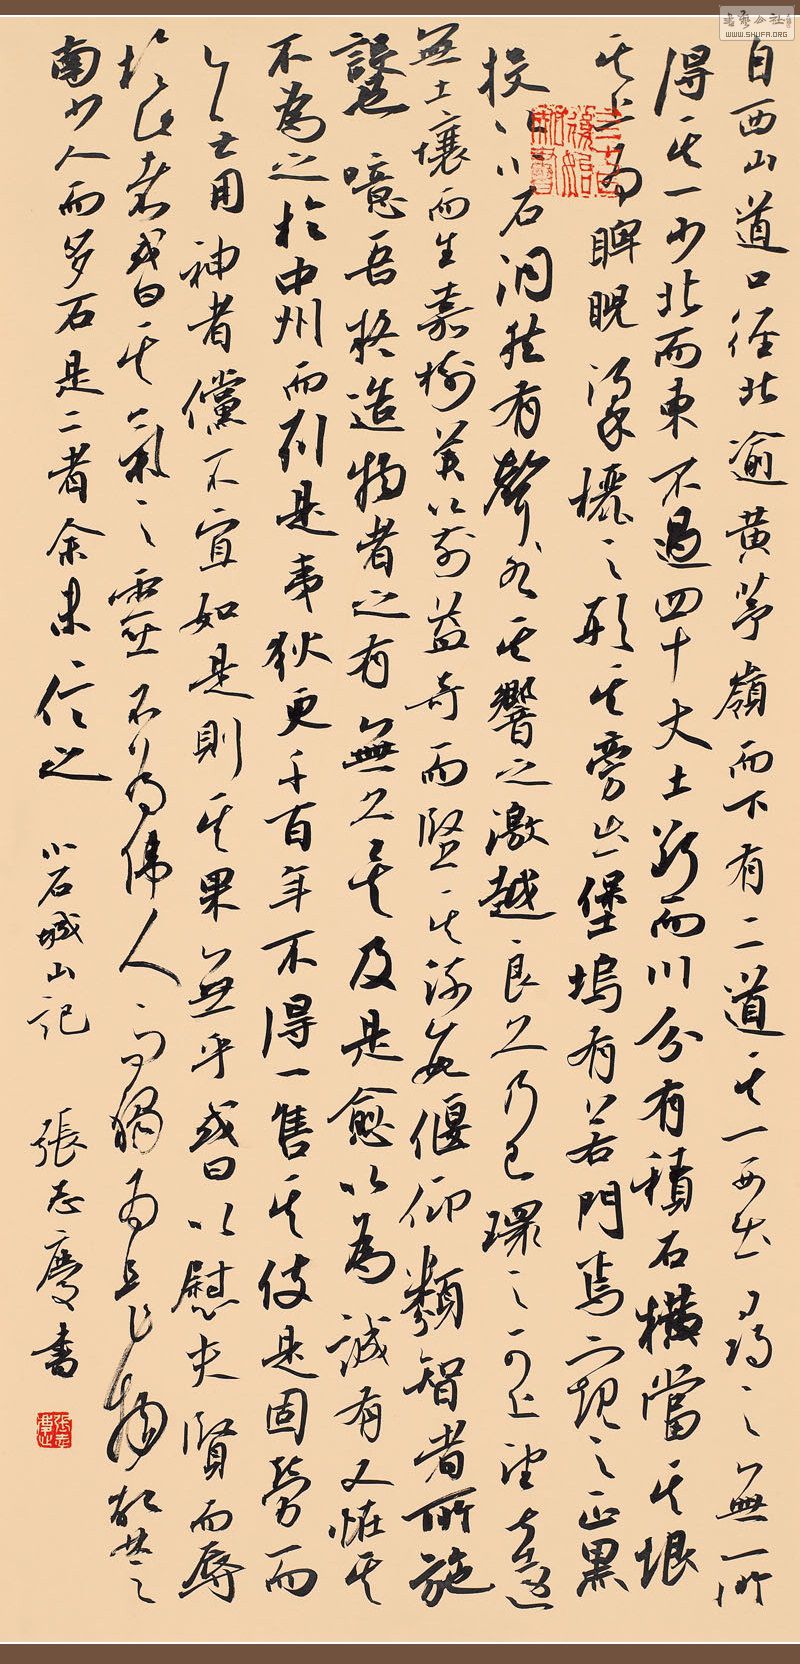 自西山道口徑北逾黃茅嶺而下有二道其一西出尋之無所
得其一少北而東不過四十丈土斷而川分有積石橫當其垠
其上為睥睨梁欐之形其旁出堡塢有若門焉窺之正黑
投以小石洞然有聲水其響之激越良久乃已環之可上望甚遠
無土壤而生嘉樹美箭益奇而堅其疏數偃仰類智者所施
設也噫吾疑造物者之有無久矣及是愈以為誠有又怪其
不為之於中州而列是夷狄更千百年不得一售其伎是固勞而
無用神者儻不宜如是則其果無乎或曰以慰夫賢而辱
於此者或曰其氣之靈不為偉人而獨為是物故楚之
南少人而多石是二者余未信之 小石城山記 張志慶書
書藝公社
WWW.SHUFA.ORG